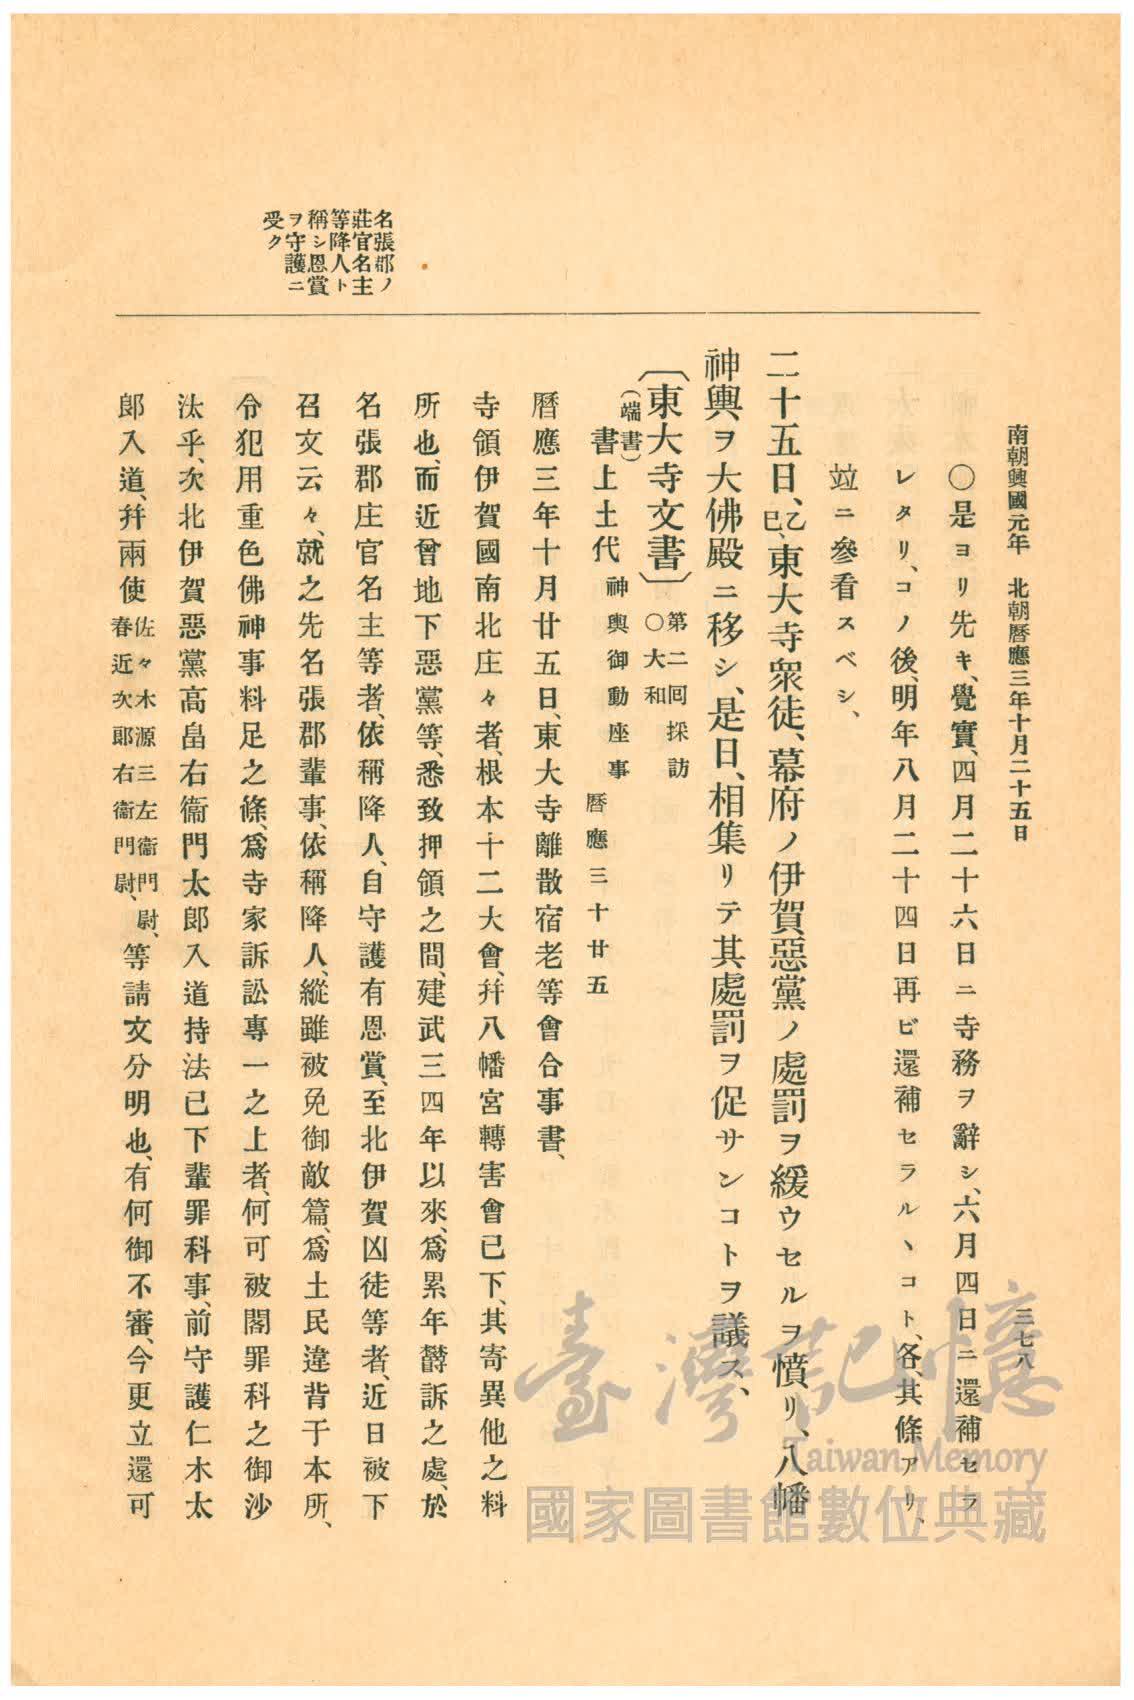 南朝興國元年　北朝曆應三年十月二十五日　三七八
〇是ヨリ先キ、覺實、四月二十六日ニ寺務ヲ辭シ、六月四日ニ還補セラ
レタリ、コノ後、明年八月二十四日再ビ還補セラルヽコト、各、其條アリ、
竝ニ參看スベシ、
二十五日、乙巳、東大寺衆徒、幕府ノ伊賀惡黨ノ處罰ヲ緩ウセルヲ憤リ、八幡
神輿ヲ大佛殿ニ移シ、是日、相集リテ其處罰ヲ促サンコトヲ議ス、
〔東大寺文書〕第二囘採訪〇大和
（端書）
書上土代神輿御動座事曆應三十廿五
曆應三年十月廿五日、東大寺離散宿老等會合事書、
寺領伊賀國南北庄々者、根本十二大會、幷八幡宮轉害會已下、其寄異他之料
所也、而近曾地下惡黨等、悉致押領之間、建武三四年以來、爲累年欝訴之處、於
名張郡庄官名主等者、依稱降人、自守護有恩賞、至北伊賀凶徒等者、近日被下
召文云々、就之先名張郡輩事、依稱降人、縱雖被免御敵篇、爲土民違背于本所、
令犯用重色佛神事料足之條、爲寺家訴訟專一之上者、何可被閣罪科之御沙
汰乎、次北伊賀惡黨高畠右衞門太郎入道持法已下輩罪科事、前守護仁木太
郎入道、幷兩使佐々木源三左衞門尉、春近次郎右衞門尉、等請文分明也、有何御不審、今更立還可
名張郡ノ
莊官名主
等降人ト
稱シ恩賞
ヲ守護ニ
受ク
臺灣記憶
Taiwan Memory
國家圖書館數位典藏